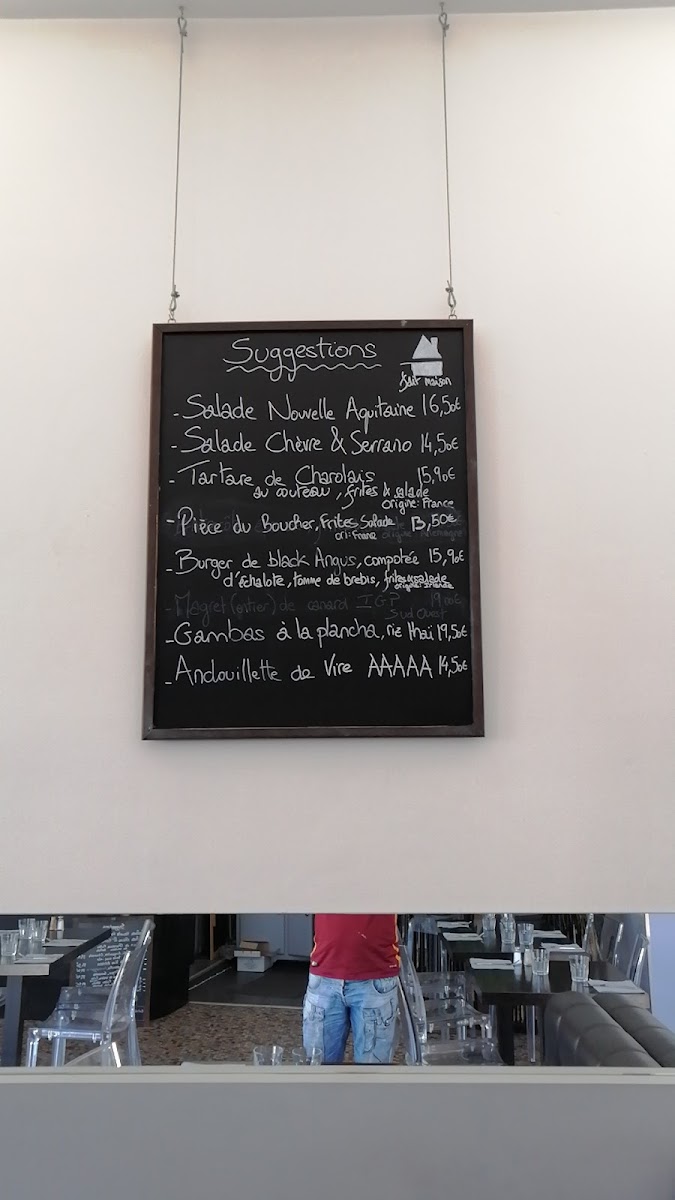 Suggestions
fait maison
- Salade Nouvelle Aquitaine 16,50€
- Salade Chèvre & Serrano 14,50€
- Tartare de Charolais 15,90€
au couteau, frites & salade
origine: France
- Pièce du Boucher, Frites Salade 13,50€
ori: France
- Burger de black Angus, compotée 15,90€
d'échalote, tomme de brebis, frites & salade
origine: Irlande
- Magret (entier) de canard IGP 19,00€
Sud Ouest
- Gambas à la plancha, riz thaï 19,50€
- Andouillette de Vire AAAAA 14,50€